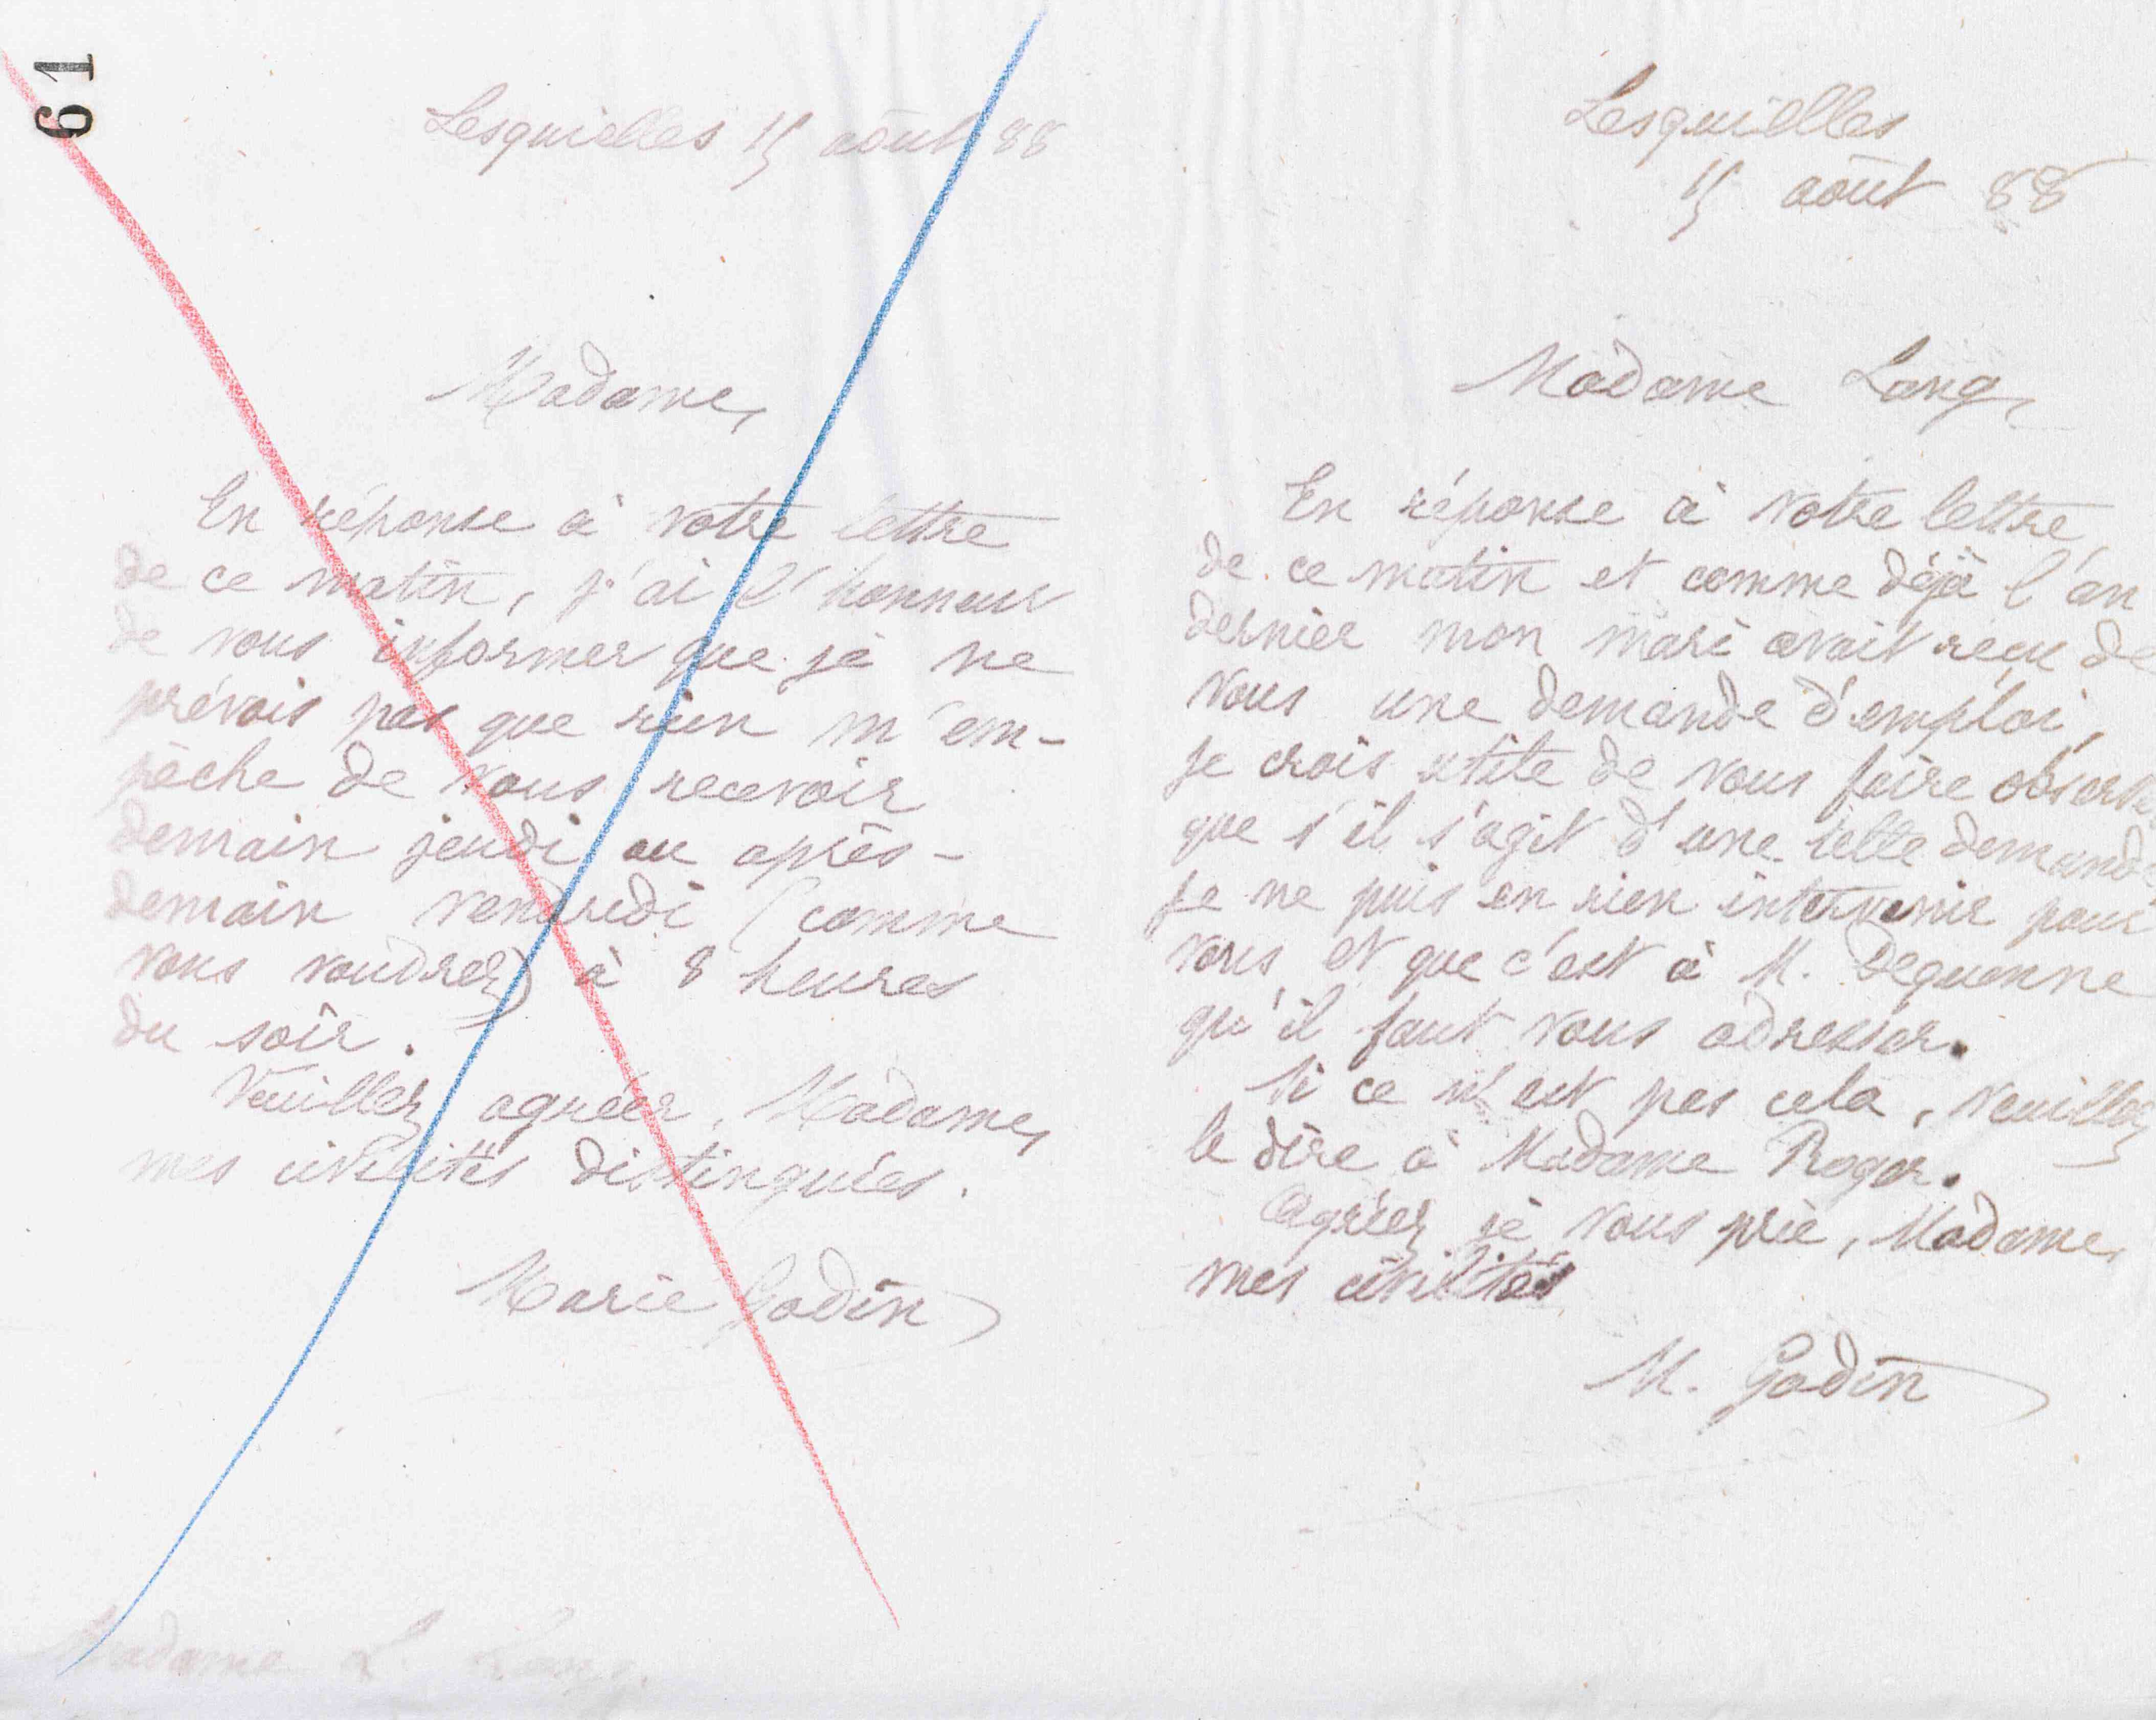 61
Lesquielles 15 août 88
Madame,
En réponse à votre lettre
de ce matin, j'ai l'honneur
de vous informer que je ne
prévois pas que rien m'em-
pêche de vous recevoir
demain jeudi ou après-
demain vendredi (comme
vous voudrez) à 8 heures
du soir.
Veuillez agréer, Madame,
mes civilités distinguées.
Marie Godin
Madame L. Lang.
Lesquielles
15 août 88
Madame Lang,
En réponse à votre lettre
de ce matin et comme déjà l'an
dernier mon mari avait reçu de
vous une demande d'emploi,
je crois utile de vous faire observer
que s'il s'agit d'une telle demande
je ne puis en rien intervenir pour
vous et que c'est à M. Dequenne
qu'il faut vous adresser.
Si ce n'est pas cela, veuillez
le dire à Madame Roger.
Agréez, je vous prie, Madame,
mes civilités
M. Godin